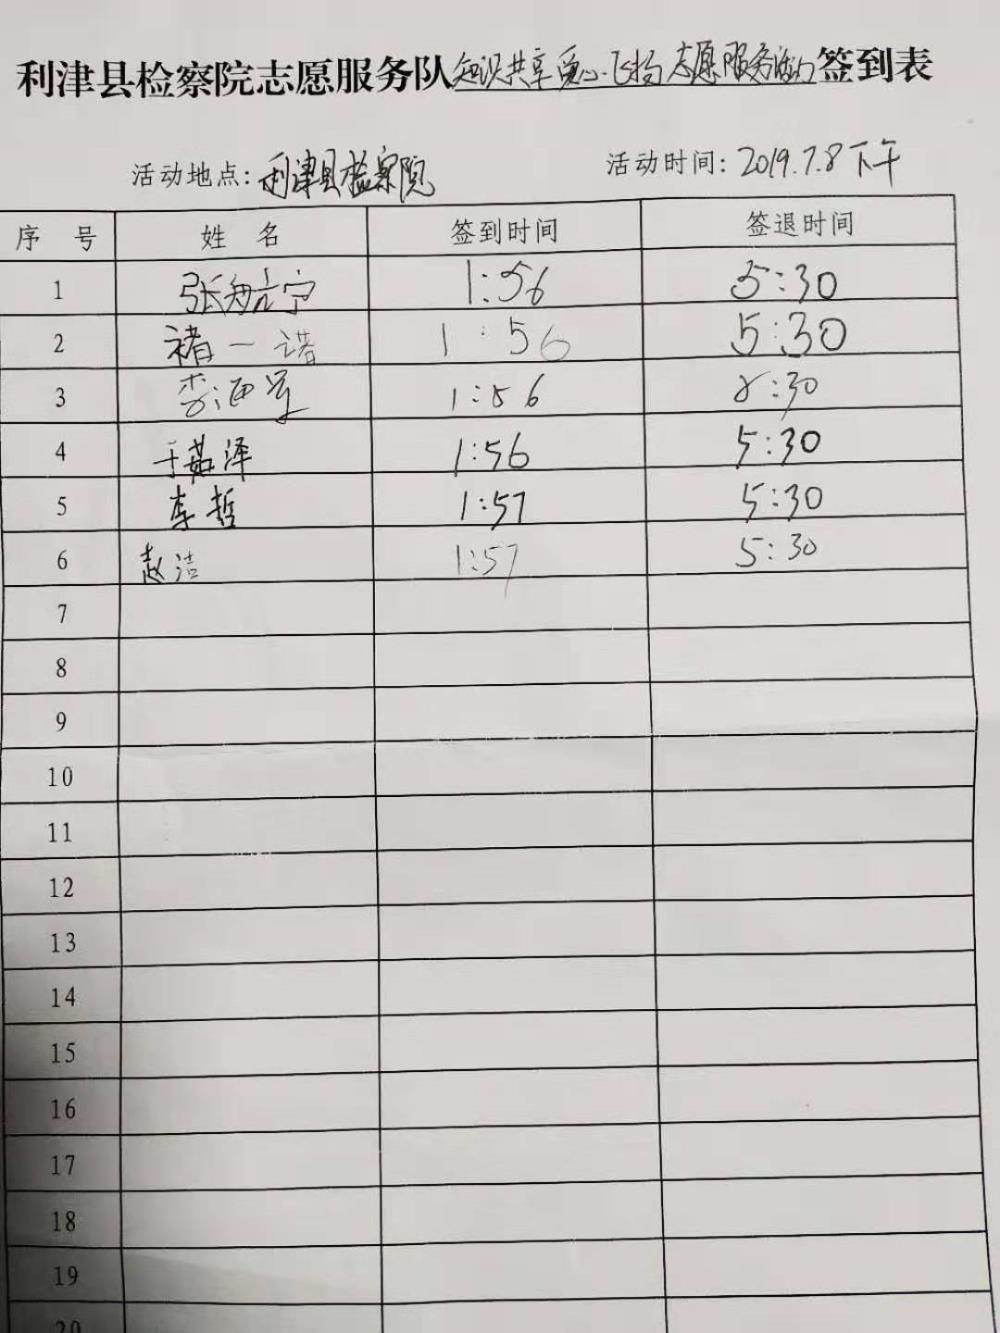 利津县检察院志愿服务队知识共享 爱心飞扬 志愿服务活动签到表
活动地点:利津县检察院 活动时间:2019.7.8下午
序 号 姓 名 签到时间 签退时间
1 张舟宁 1:56 5:30
2 褚一诺 1:56 5:30
3 李 1:56 5:30
4 于茹泽 1:56 5:30
5 李哲 1:57 5:30
6 赵洁 1:57 5:30
7
8
9
10
11
12
13
14
15
16
17
18
19
20